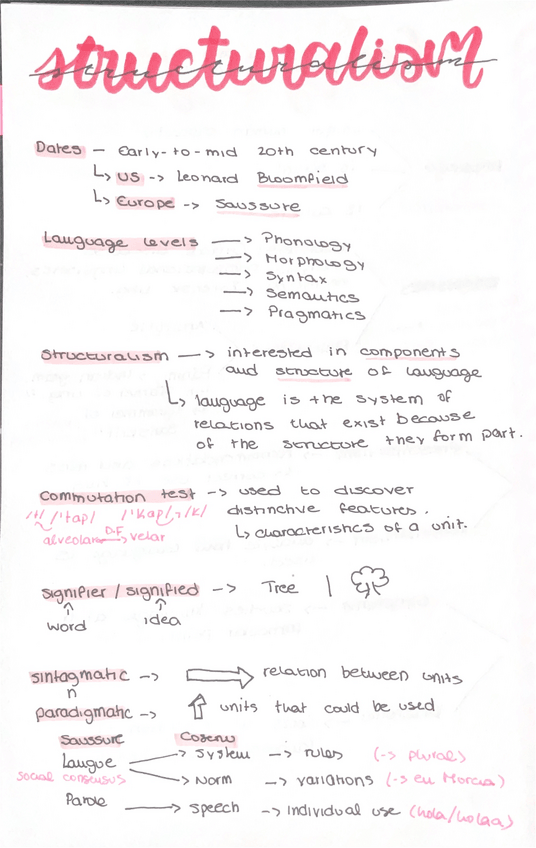 structuralism
structuralism
Dates – Early-to-mid 20th century
↳ US -> Leonard Bloomfield
↳ Europe -> Saussure
Language levels —> Phonology
—> Morphology
—> Syntax
—> Semantics
—> Pragmatics
structuralism —> interested in components
and structure of language
↳ language is the system of
relations that exist because
of the structure they form part.
Commutation test -> used to discover
/t/ /'tap/ /'Kap/ -> /k/ distinctive features.
alveolar D.F -> velar ↳ characteristics of a unit.
signifier / signified -> Tree |
word idea
sintagmatic ->  relation between units
n
paradigmatic ->  units that could be used
Saussure Coseriu
Langue -> System -> rules (-> plural)
social consensus -> Norm -> variations (-> eu Murcia)
Parole —> speech -> individual use (hola/holaa)